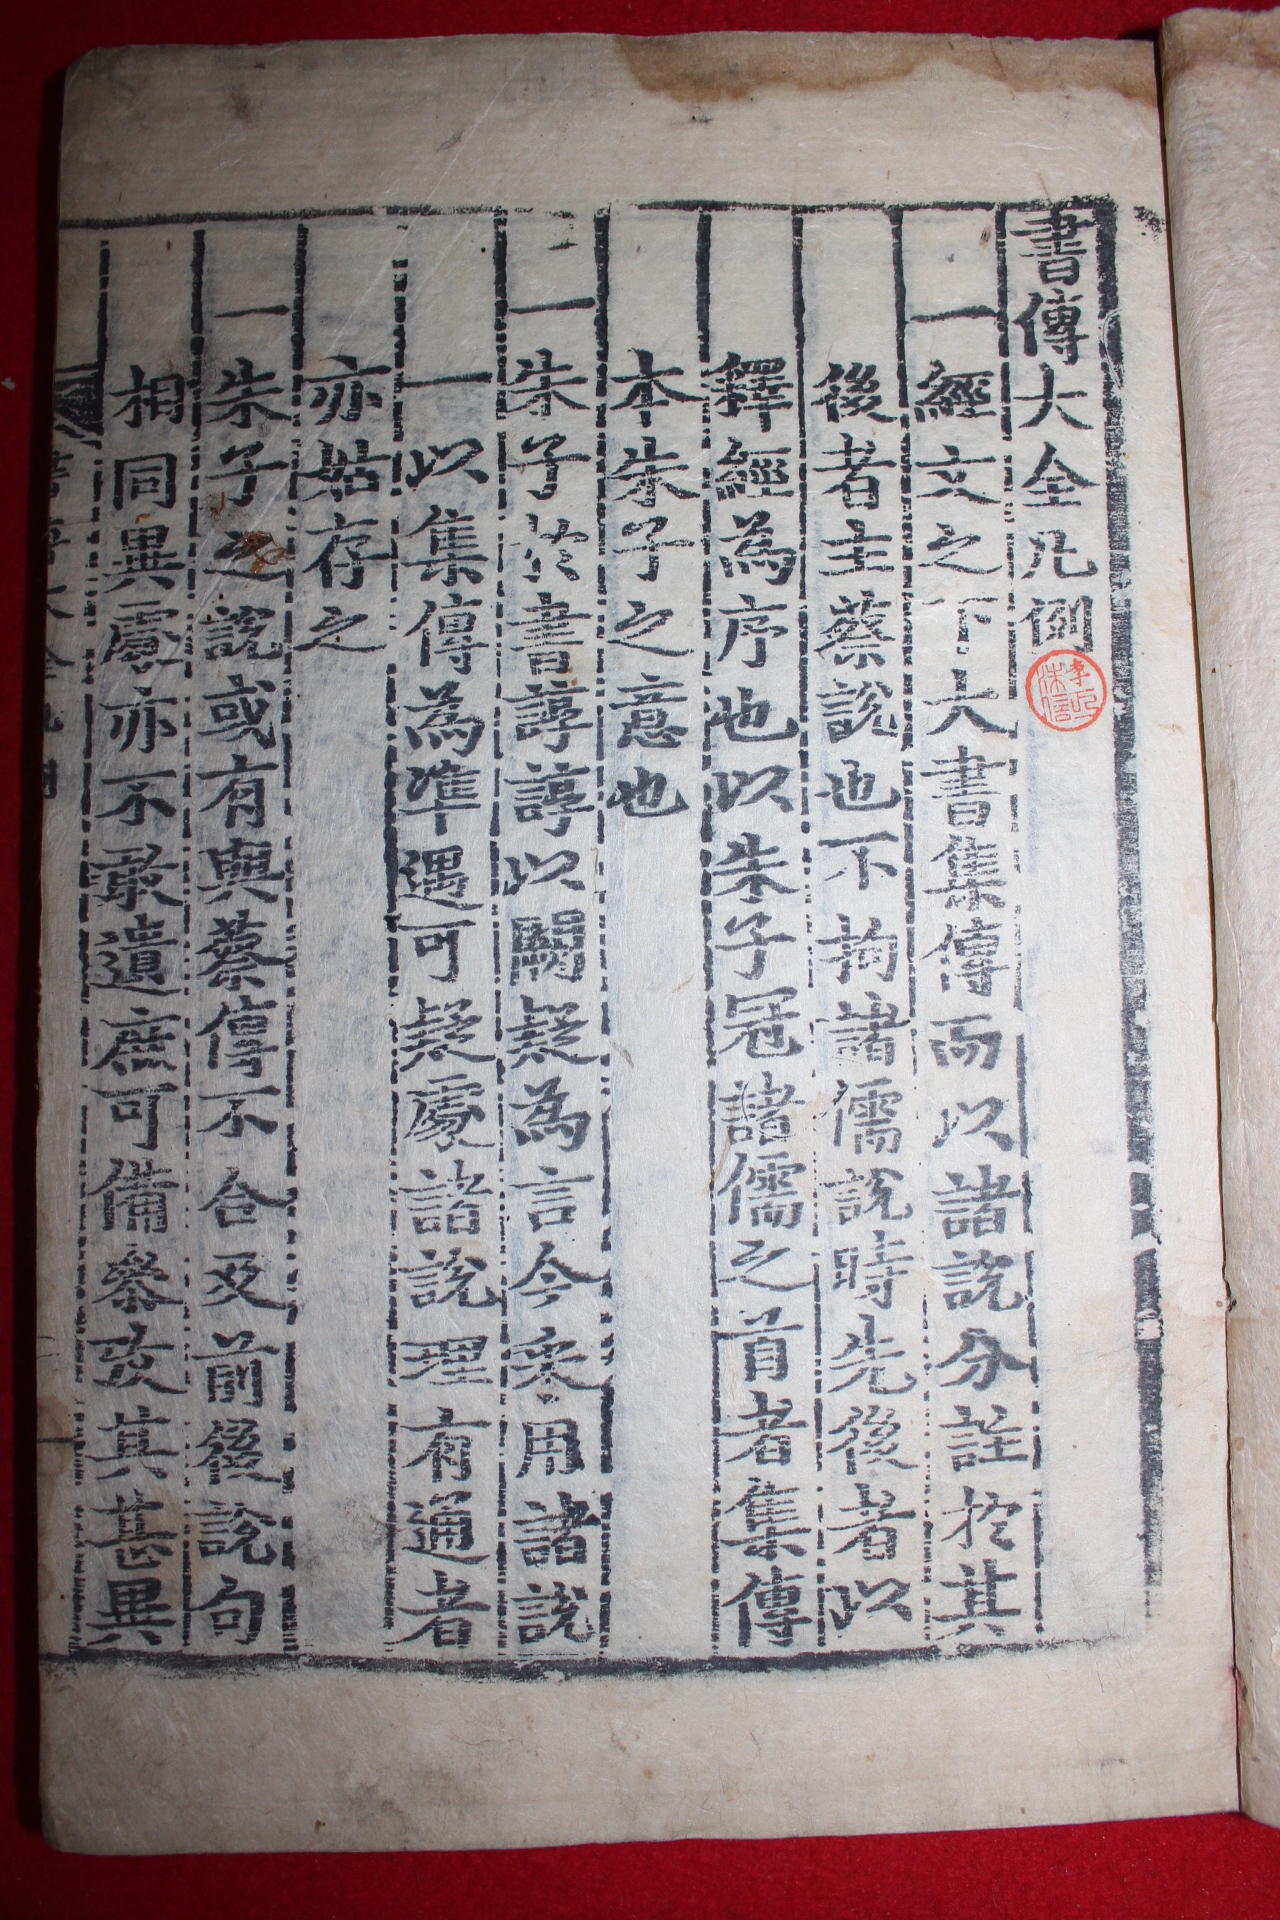 書傳大全凡例
一經文之下大書集傳而以諸説分註於其
後者主蔡說也不拘諸儒說時先後者以
釋經為序也以朱子冠諸儒之首者集傳
本朱子之意也
一朱子於書諄諄以闕疑為言今采用諸說
一以集傳為準遇可疑處諸說理有通者
亦姑存之
一朱子之說或有與蔡傳不合及前後說句
相同異處亦不敢遺庶可備參攷其甚異